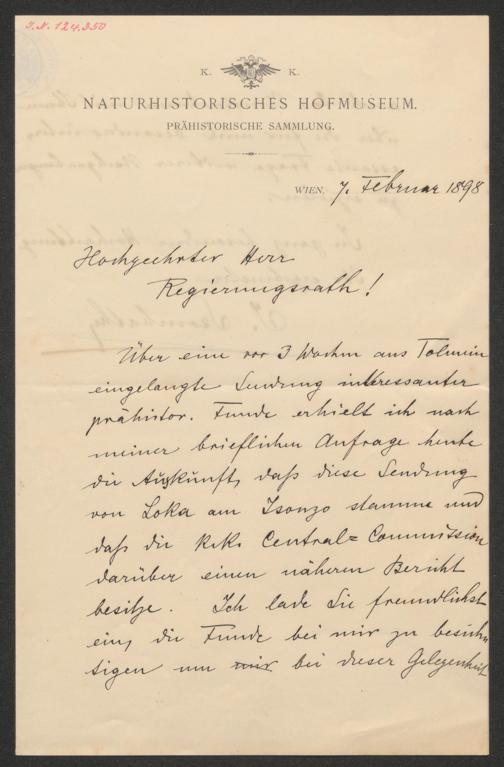 I.N. 124.350
K. K.
NATURHISTORISCHES HOFMUSEUM.
PRÄHISTORISCHE SAMMLUNG.
WIEN, 7. Februar 1898
Hochgeehrter Herr
Regierungsrath!
Über eine vor 3 Wochen aus Tolmein
eingelangte Sendung interessanter
prähistor. Funde erhielt ich nach
meiner brieflichen Anfrage heute
die Auskunft, daß diese Sendung
von Loka am Isonzo stamme und
daß die k. k. Central=Commission
darüber einen näheren Bericht
besitze. Ich lade Sie freundlichst
ein, die Funde bei mir zu besich
tigen um mir bei dieser Gelegenheit